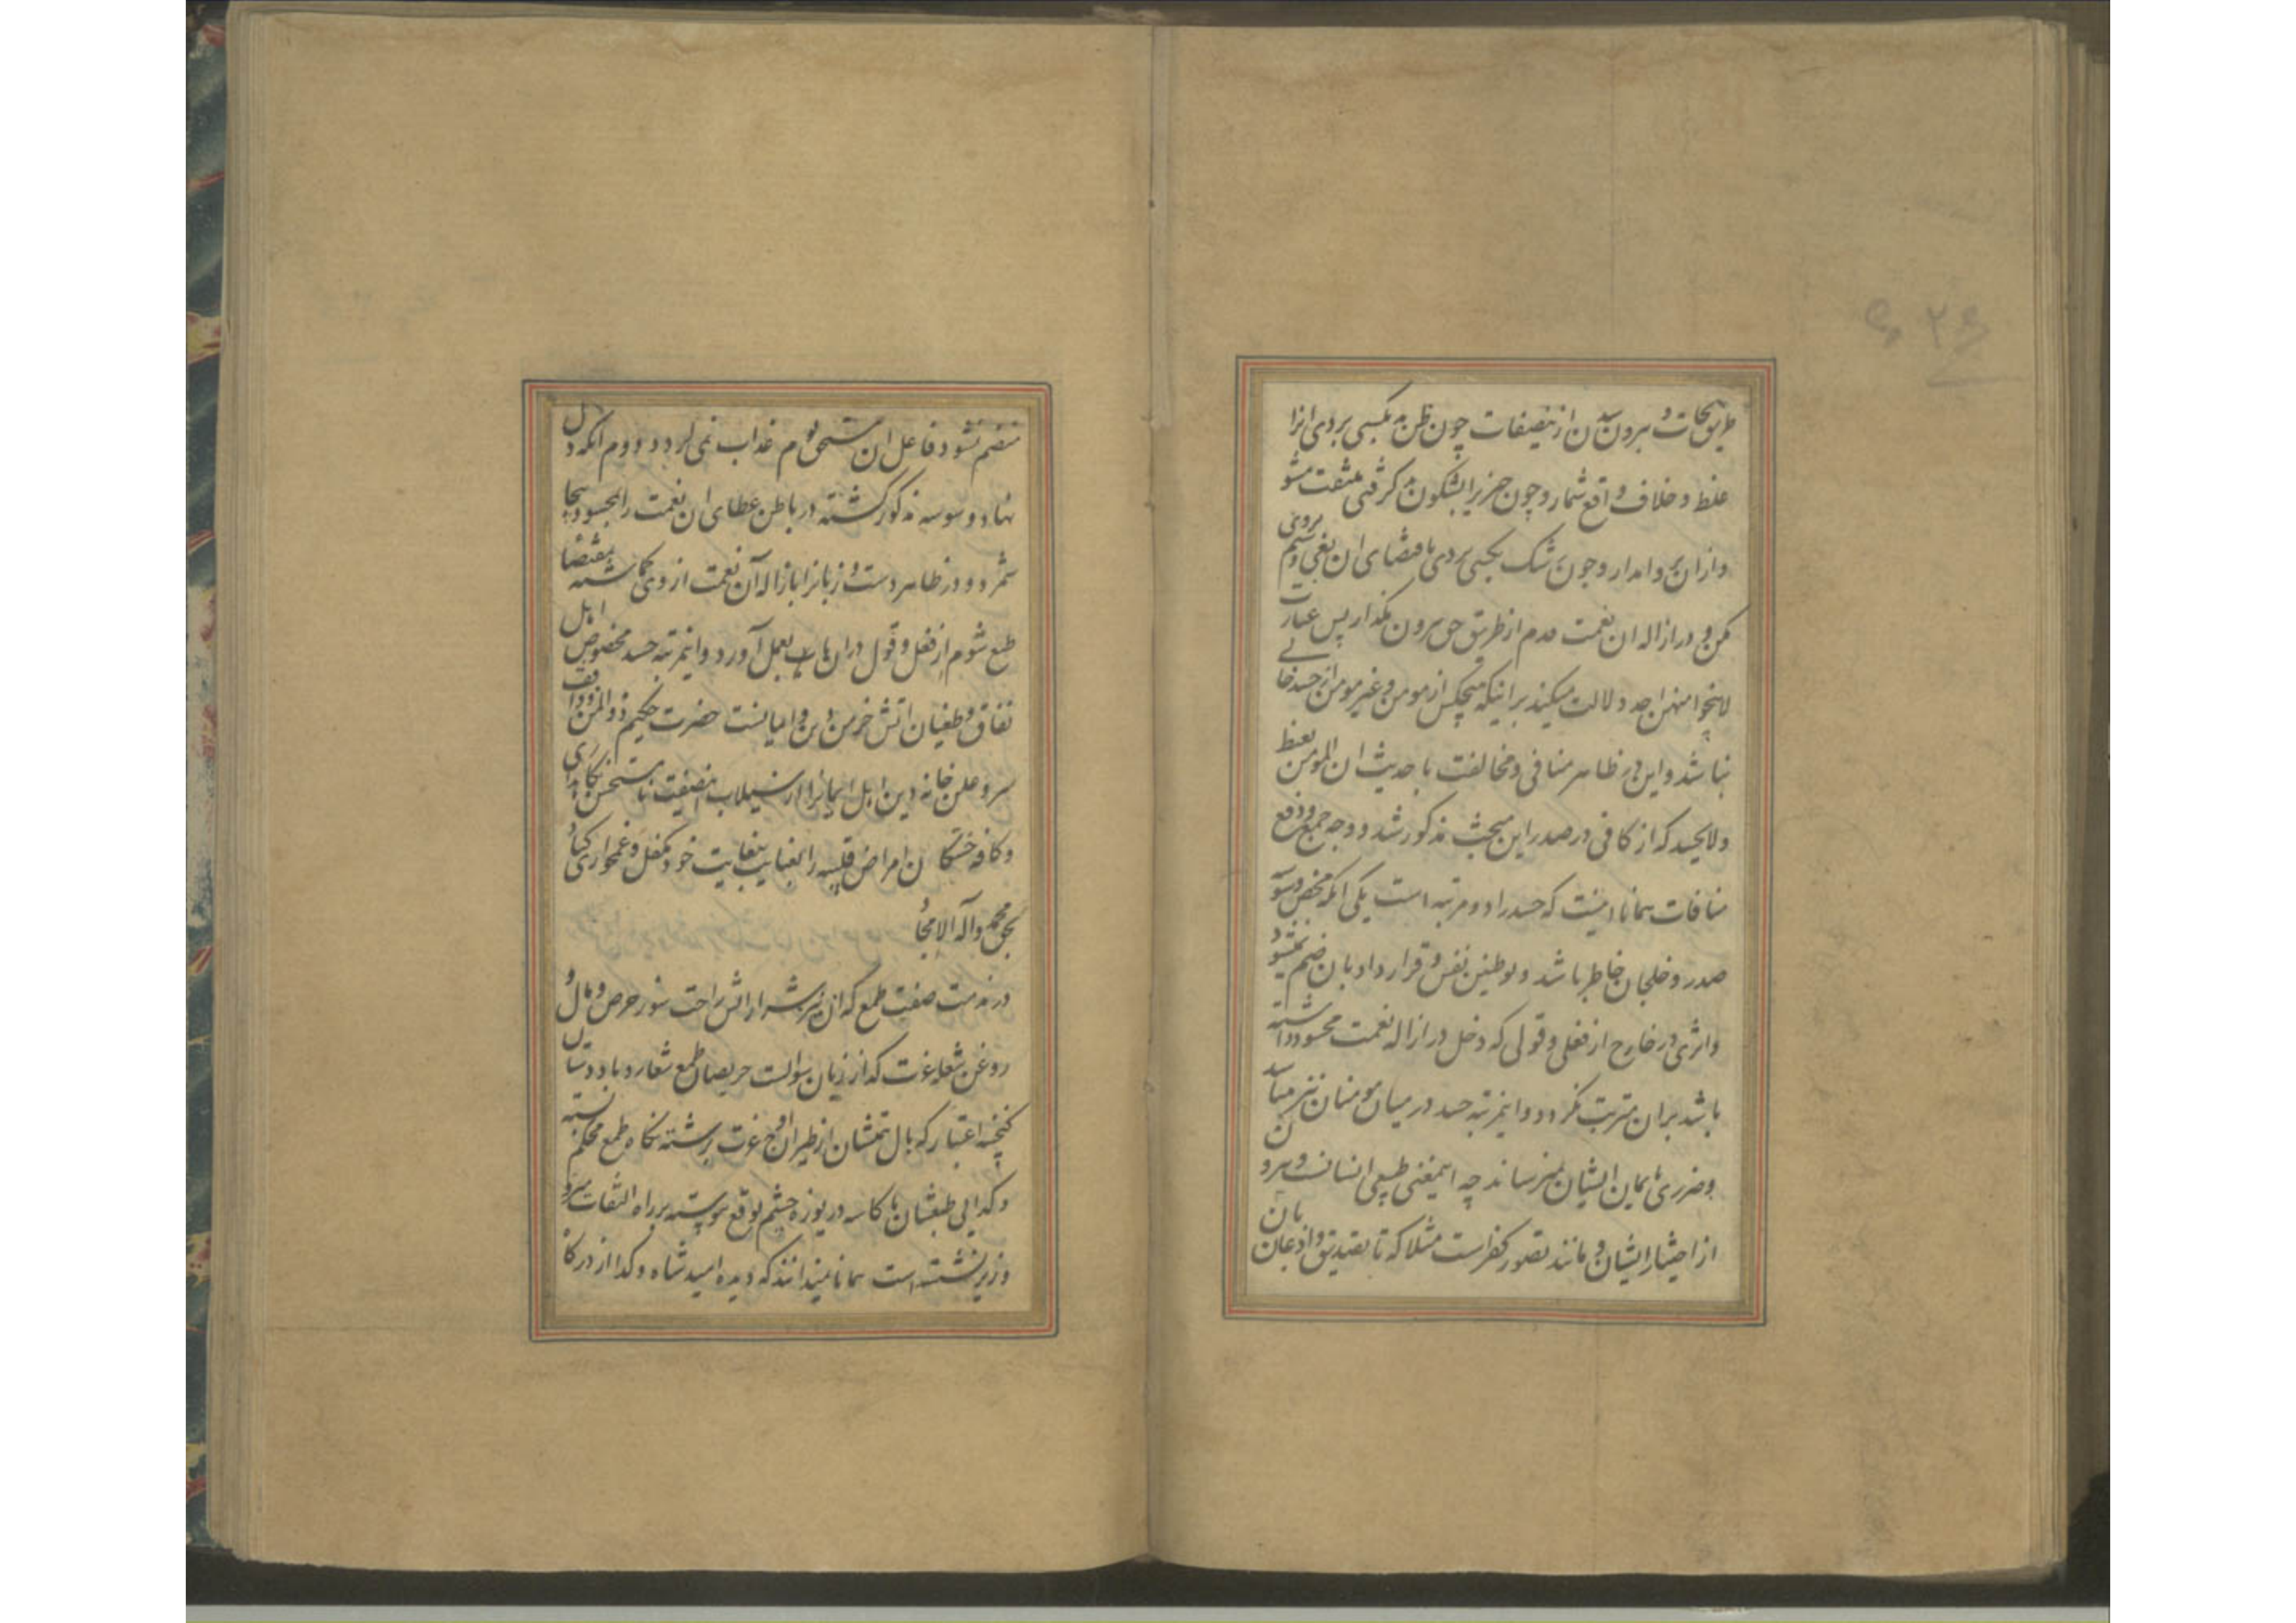 طریق نجات و بیرون شدن ازینصفات چون ظن بد بکسی بردی انرا
غلط و خلاف واقع شمار و چون چیزیرا بشکون بد گرفتی ملتفت مشو
و از ان پروا مدار و چون رشک بکسی بردی باقتضای ان بغی و ستم بروی
مکن و در ازاله ان نعمت قدم از طریق حق بیرون مگذار پس عبارت
لا ینجوا منهن احد دلالت میکند بر اینکه هیچکس از مومن و غیر مومن از حسد خالی
نباشد و این در ظاهر منافی و مخالفت با حدیث ان المومن یغبط
و لا یحسد که از کافی در صدر این مبحث مذکور شد و وجه جمع و دفع
منافات همانا اینست که حسد را دو مرتبه است یکی انکه محض وسوسه
صدر و خلجان خاطر باشد و توطین نفس و قرارداد بان ضم نشود
و اثری در خارج از فعلی و قولی که دخل در ازاله نعمت محسود داشته
باشد بران مترتب نگردد و اینمرتبه حسد در میان مومنان نیز میباشد
و ضرری بایمان ایشان نمیرساند چه اینمعنی طبیعی انسانست و بیرون
از اختیار ایشان و مانند تصور کفر است مثلا که تا تصدیق و اذعان بان
منضم نشود فاعل ان مستحق لوم و عذاب نمی گردد دوم انکه دل
نهاد وسوسه مذکور گشته در باطن عطای ان نعمت را بمحسود بیجا
شمرد و در ظاهر دست و زبانرا بازاله آن نعمت از وی گماشته مقتضای
طبع شوم از فعل و قول در ان باب بعمل آورد و اینمرتبه حسد مخصوص اهل
نفاق و طغیان و آتش خرمن دین و ایمانست حضرت حکیم ذوالمنن واقف
سر و علن خانه دین اهل ایمانرا از سیلاب اینصفت نامستحسن نگاهداری
و کافه خستگان امراض قلبیه را بعنایت بیغایت خود تکفل و غمخواری کناد
بحق محمد و آله الامجاد
در مذمت صفت طمع که ان نیز شرار اتش راحت سوز حرص و مال و
روغن شعله عزت گداز زبان سوالست حریصان طمع شعار و باد دستان
گنجفه اعتبار که بال همتشان از طیران اوج عزت برشته نگاه طمع محکم بسته
و گدایی طبعشان با کاسه دریوزه چشم توقع پیوسته بر راه التفات میر و
وزیر نشسته است همانا میدانند که دیده امید شاه و گدا از درگاه